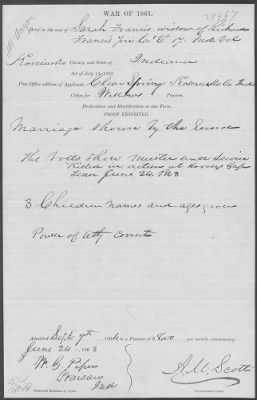 WAR OF 1861.
Proof in the case of Sarah Francis widow of Richard
Francis Co "E" 17 Ind Vol
Kosciusko County, and State of Indiana
Act of July 14, 1862.
Post Office address of Applicant, Clear Spring Kosciusko Co Ind
Claim for Widows Pension.
Declaration and Identification in due Form.
PROOF EXHIBITED.
Marriage shown by the
The Rolls show muster and service
Killed in action at Hoovers Gap
Tenn June 24 1863
3 Children names and ages given
Power of Atty
Admitted Sept 7th 186 to a Pension of 8.00 per month, commencing
June 24 1863
W. G. Piper
Warsaw
Ind
A. M. Scott